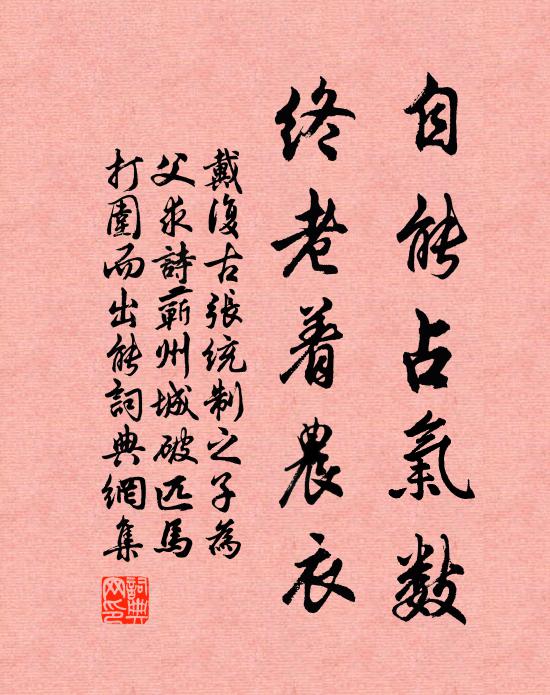 自能占氣数
終老着農衣
戴復古張統制之子為
父求詩蘄州城破匹馬
打圍而出能詞典網集
詞典網印